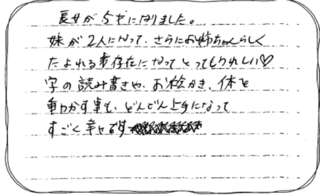 長女が5才になりました。
妹が2人になって、さらにお姉ちゃんらしく
たよれる存在になってとってもうれしい♡
字の読み書きや、お絵かき、体を
動かす事も、どんどん上手になって
すごく幸せです